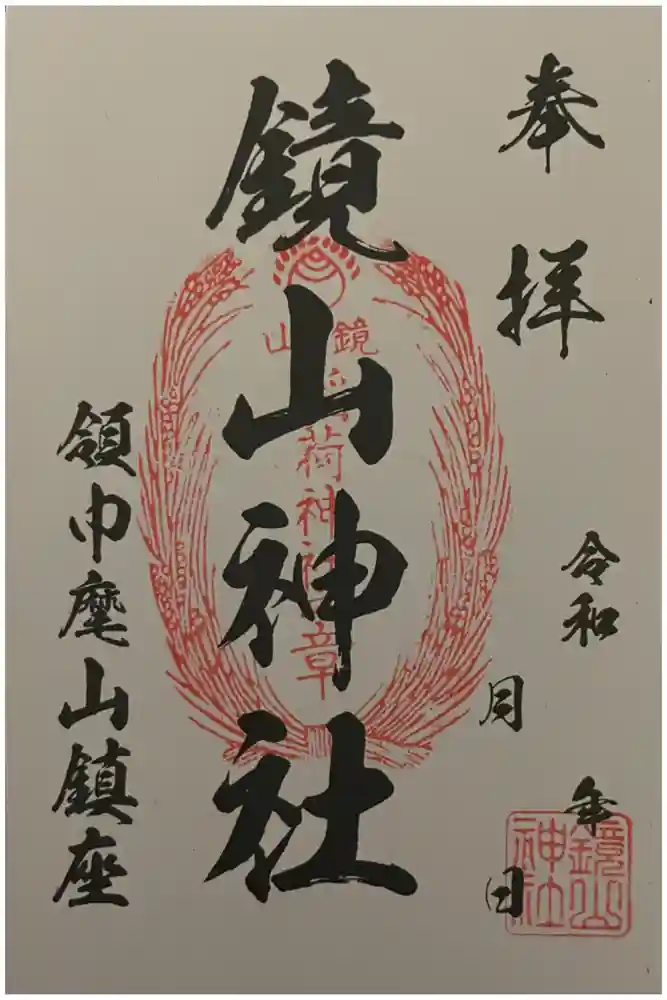 奉拝
令和 年
月 日
鏡山神社
鏡山稲荷神社章
領巾麾山鎮座
鏡山
神社